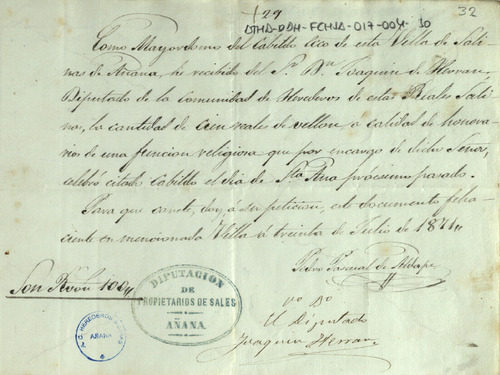 29
32
ATHA-DAH-FCHSA-017-004-10
Como Mayordomo del Cabildo Ecco de esta Villa de Sali
nas de Añana, he recibido del Sr. Dn. Joaquin de Herran,
Diputado de la Comunidad de Herederos de estas Reales Sali
nas, la cantidad de cien reales de vellon, a calidad de honora
rios de una funcion religiosa que por encargo de dicho Señor,
celebró citado Cabildo el dia de Sta Ana proximo pasado.
Para que conste, doy, á su peticion, este documento feha
ciente en mencionada Villa á treinta de Julio de 1871
Pedro Pascual de
Son Rvon 100
DIPUTACION
DE
PROPIETARIOS DE SALES
AÑANA.
Vo Bo
El Diputado
Joaquin Herran
HEREDEROS
AÑANA